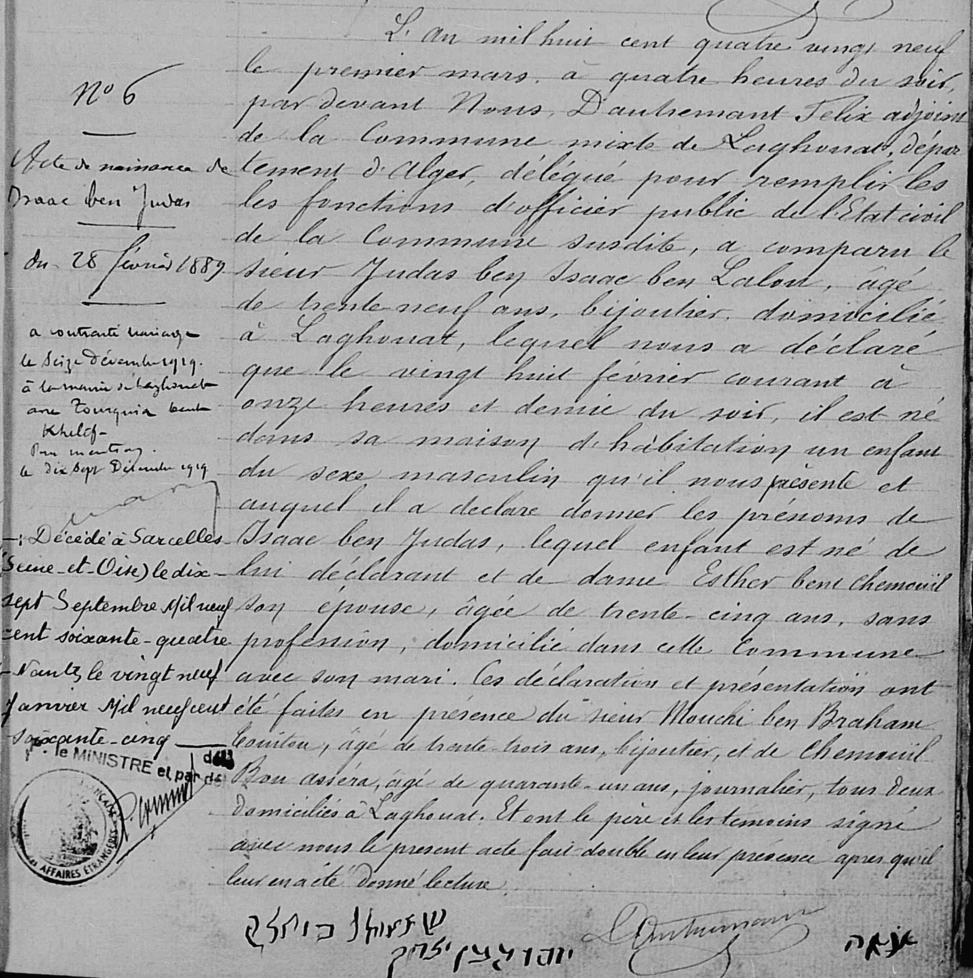 N° 6
Acte de naissance de
Isaac ben Judas
du 28 février 1889
a contracté mariage
le Seize Décembre 1919
à la mairie de Laghouat
avec Tourquia bent
Khelef
Pour mention
le dix sept Décembre 1919
Décédé à Sarcelles
(Seine-et-Oise) le dix-
sept Septembre Mil neuf
cent soixante-quatre
Nantes le vingt neuf
Janvier Mil neuf cent
soixante-cinq
P. le MINISTRE et par dél
AFFAIRES ETRANGERES
L'An mil huit cent quatre vingt neuf
le premier mars. à quatre heures du soir,
par devant Nous, Dautremant Felix adjoint
de la Commune mixte de Laghouat, dépar
tement d'Alger, délégué pour remplir les
les fonctions d'officier public de l'Etat civil
de la Commune susdite, a comparu le
sieur Judas ben Isaac ben Lalou, âgé
de trente neuf ans, bijoutier, domicilié
à Laghouat, lequel nous a déclaré
que le vingt huit février courant à
onze heures et demie du soir, il est né
dans sa maison d'habitation un enfant
du sexe masculin qu'il nous présente et
auquel il a declaré donner les prénoms de
Isaac ben Judas, lequel enfant est né de
lui déclarant et de dame Esther bent Chemouil
son épouse, âgée de trente-cinq ans, sans
profession, domicilié dans cette Commune
avec son mari. Ces déclaration et présentation ont
été faites en présence du sieur Mouchi ben Braham
Touitou, âgé de trente-trois ans, bijoutier, et de Chemouil
Bou asséra, âgé de quarante-un ans, journalier, tous deux
domiciliés à Laghouat. Et ont le père et les temoins signé
avec nous le present acte fait double en leur présence après qu'il
leur en a été donné lecture.